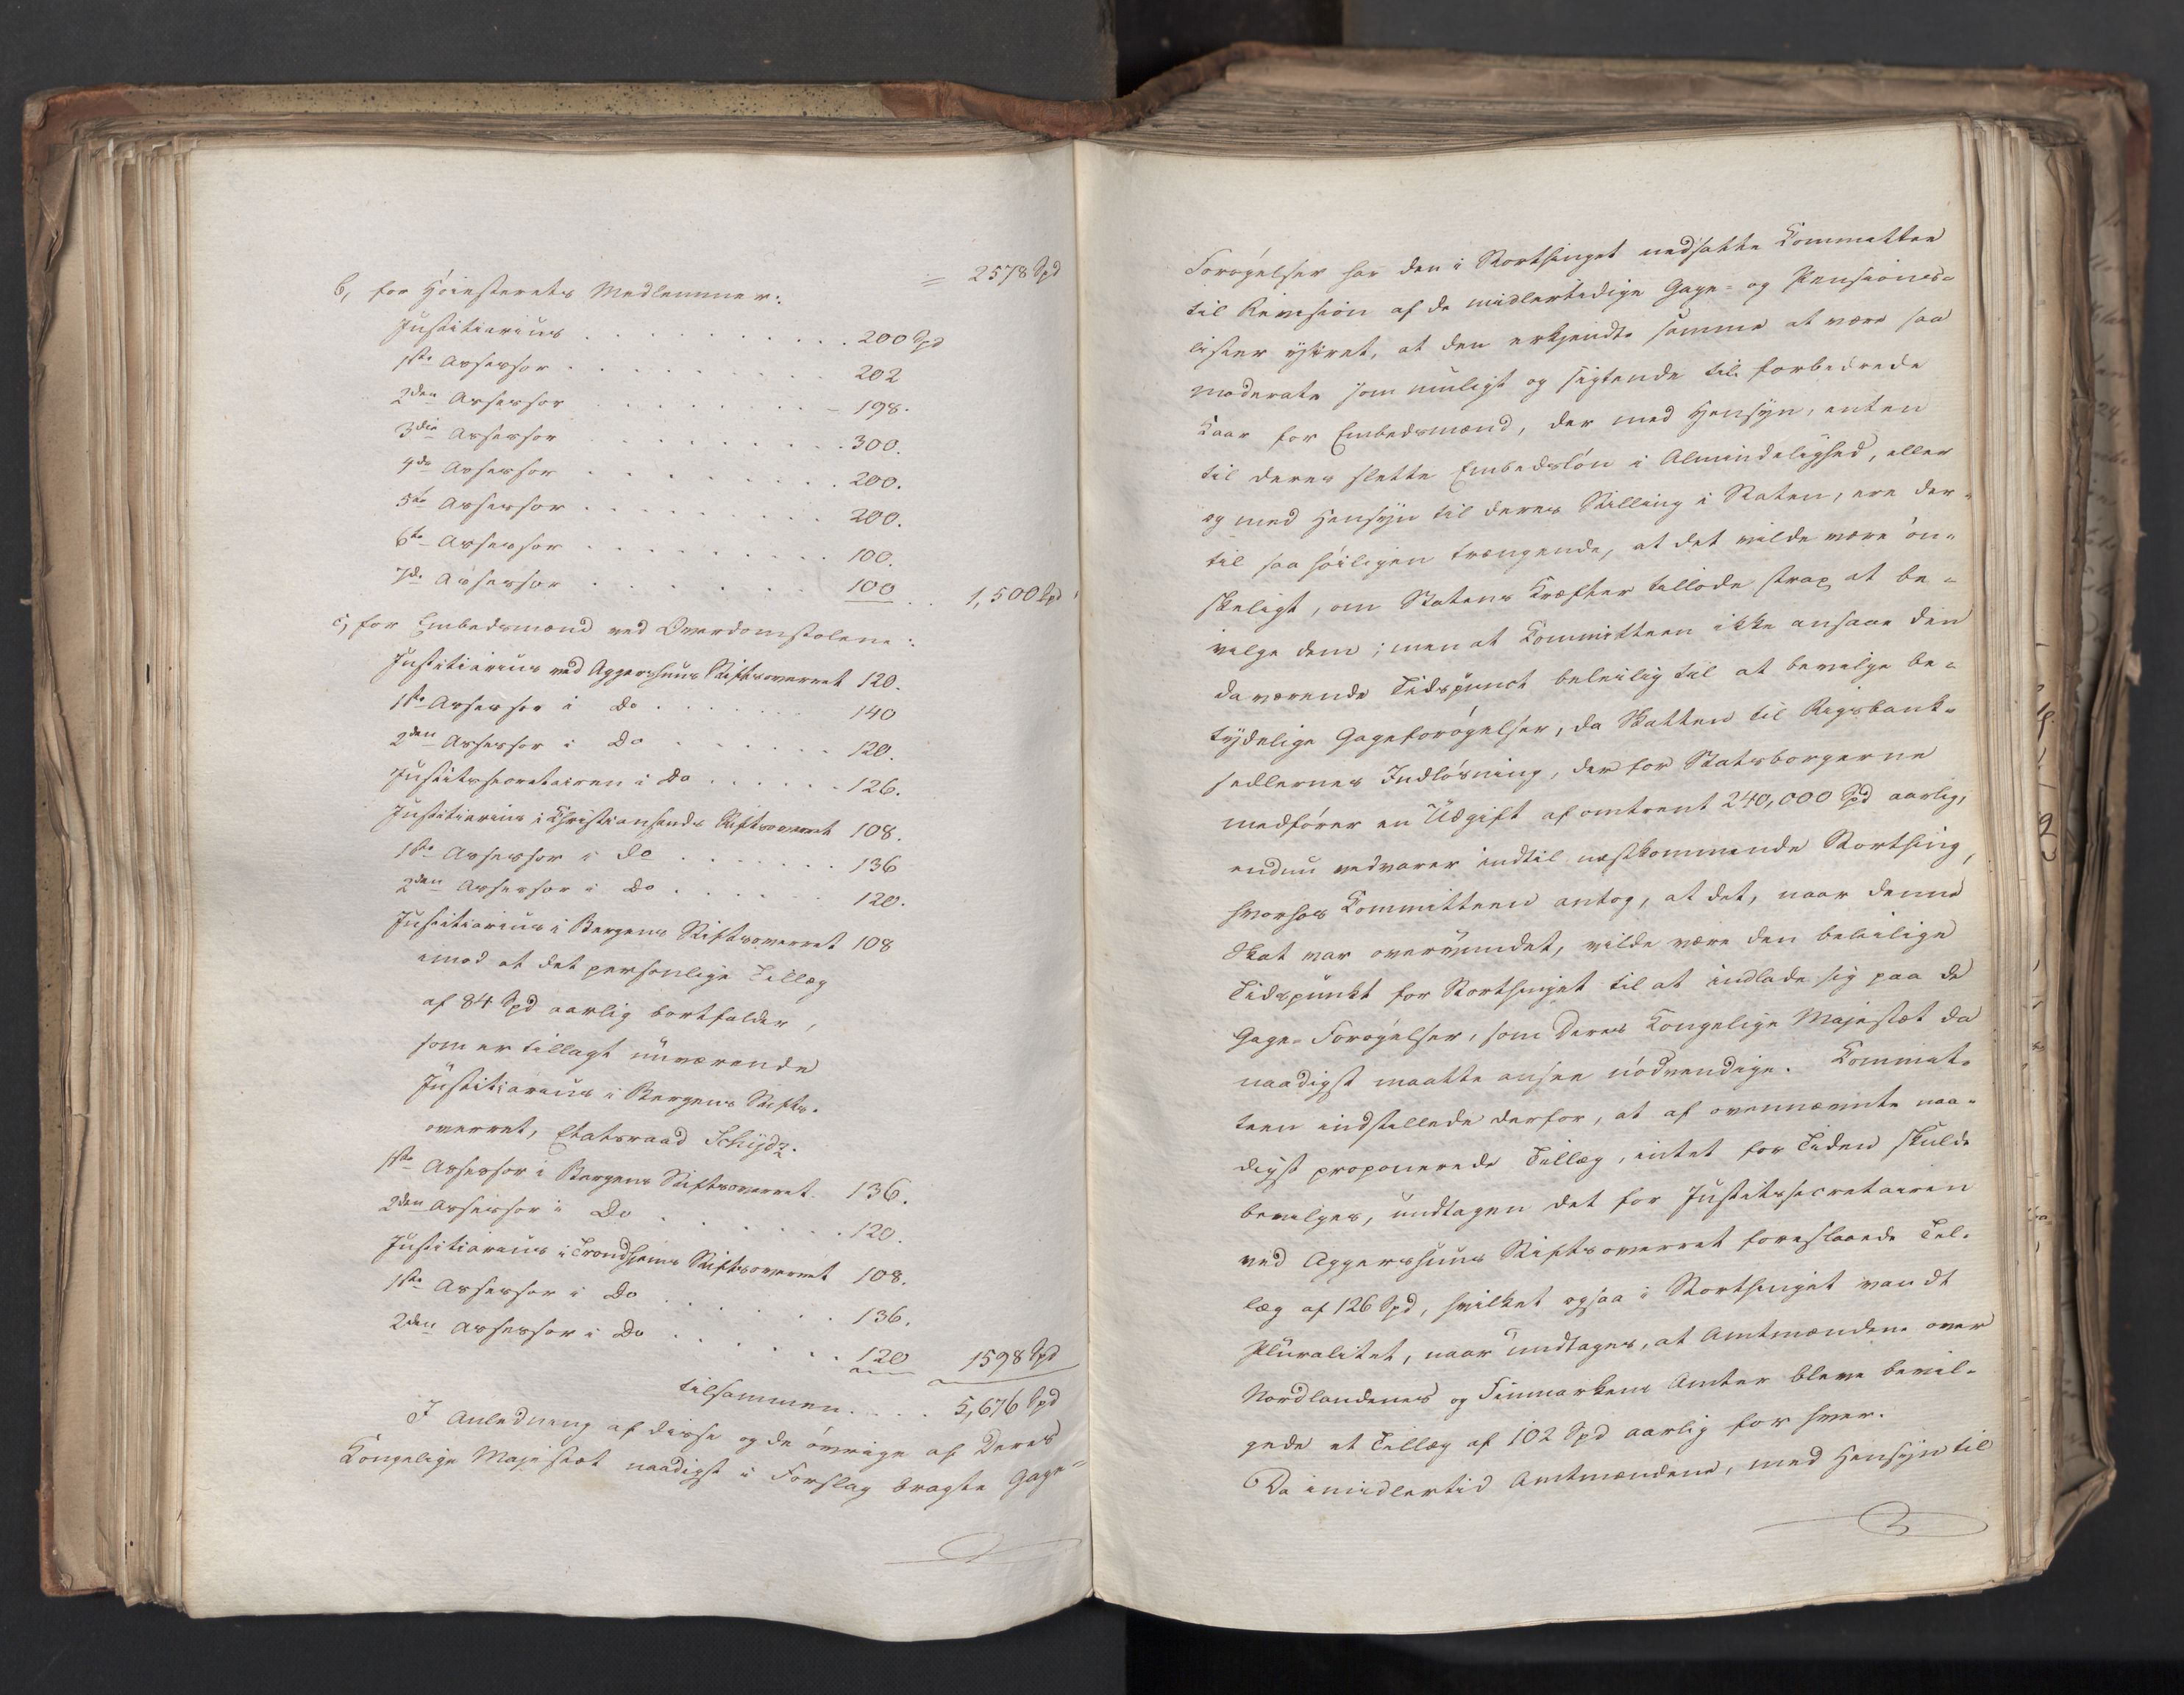 = 2578 Spd
b, for Høiesterets Medlemmer:
Justitiarius . . . . . . . . . . 200 Spd
1ste Assessor . . . . . . . . . 202
2den Assessor . . . . . . . . 198.
3die Assessor . . . . . . . . . 300.
4de Assessor . . . . . . . . 200.
5te Assessor . . . . . . . . . 200.
6te Assessor . . . . . . . . . 100.
7de Assessor . . . . . . . . 100 . . 1,500 Spd
c, for Embedsmænd ved Overdomstolene:
Justitiarius ved Aggershuus Stiftsoverret 120.
1ste Assessor i Do . . . . . . 140
2den Assessor i Do . . . . . . 120.
Justitssecretairen i Do . . . . . 126.
Justitiarius i Christiansands Stiftsoverret 108.
1ste Assessor i do . . . . . . . 136
2den Assessor i Do . . . . . 120.
Justitiarius i Bergens Stiftsoverret 108
imod at det personlige Tillæg
af 84 Spd aarlig bortfalder,
som er tillagt nuværende
Justitiarius i Bergens Stifts-
overret, Etatsraad Schydz.
1ste Assessor i Bergens Stiftsoverret. 136.
2den Assessor i Do . . . . . . 120.
Justitiarius i Trondhjems Stiftsoverret 108.
1ste Assessor i Do . . . . . 136.
2den Assessor i Do . . . . . 120 1598 Spd
tilsammen. . . . 5,676 Spd
I Anledning af disse og de øvrige af Deres
Kongelige Majestæt naadigst i Forslag bragte Gage-
Forøgelser har den i Storthinget nedsatte Committee
til Revision af de midlertidige Gage- og Pensions-
lister yttret, at den erkjendte samme at være saa
moderate som muligt og sigtende til forbedrede
Kaar for Embedsmænd, der med Hensyn, enten
til deres slette Embedsløn i Almindelighed, eller
og med Hensyn til deres Stilling i Staten, ere der-
til saa høiligen trængende, at det vilde være øn-
skeligt, om Statens Kræfter tillode strax at be-
vilge dem; men at Committeen ikke ansaae den
daværende Tidspunct beleilig til at bevilge be-
tydelige Gageforøgelser, da Skatten til Rigsbank-
sedlernes Indløsning, der for Statsborgerne
medfører en Udgift af omtrent 240,000 Spd aarlig,
endnu vedvarer indtil næstkommende Storthing,
hvorhos Committeen antog, at det, naar denne
Skat var overvundet, vilde være den beleilige
Tidspunkt for Storthinget til at indlade sig paa de
Gage-Forøgelser, som Deres Kongelige Majestæt da
naadigst maatte ansee nødvendige. Commit-
teen indstillede derfor, at af ovennævnte naa-
digst proponerede Tillæg, intet for Tiden skulde
bevilges, undtagen det for Justitssecretairen
ved Aggershuus Stiftsoverret foreslaaede Til-
læg af 126 Spd, hvilket ogsaa i Storthinget vandt
Pluralitet, naar undtages, at Amtmændene over
Nordlandenes og Finmarkens Amter bleve bevil-
gede et Tillæg af 102 Spd aarlig for hver.
Da imidlertid Amtmændene, med Hensyn til